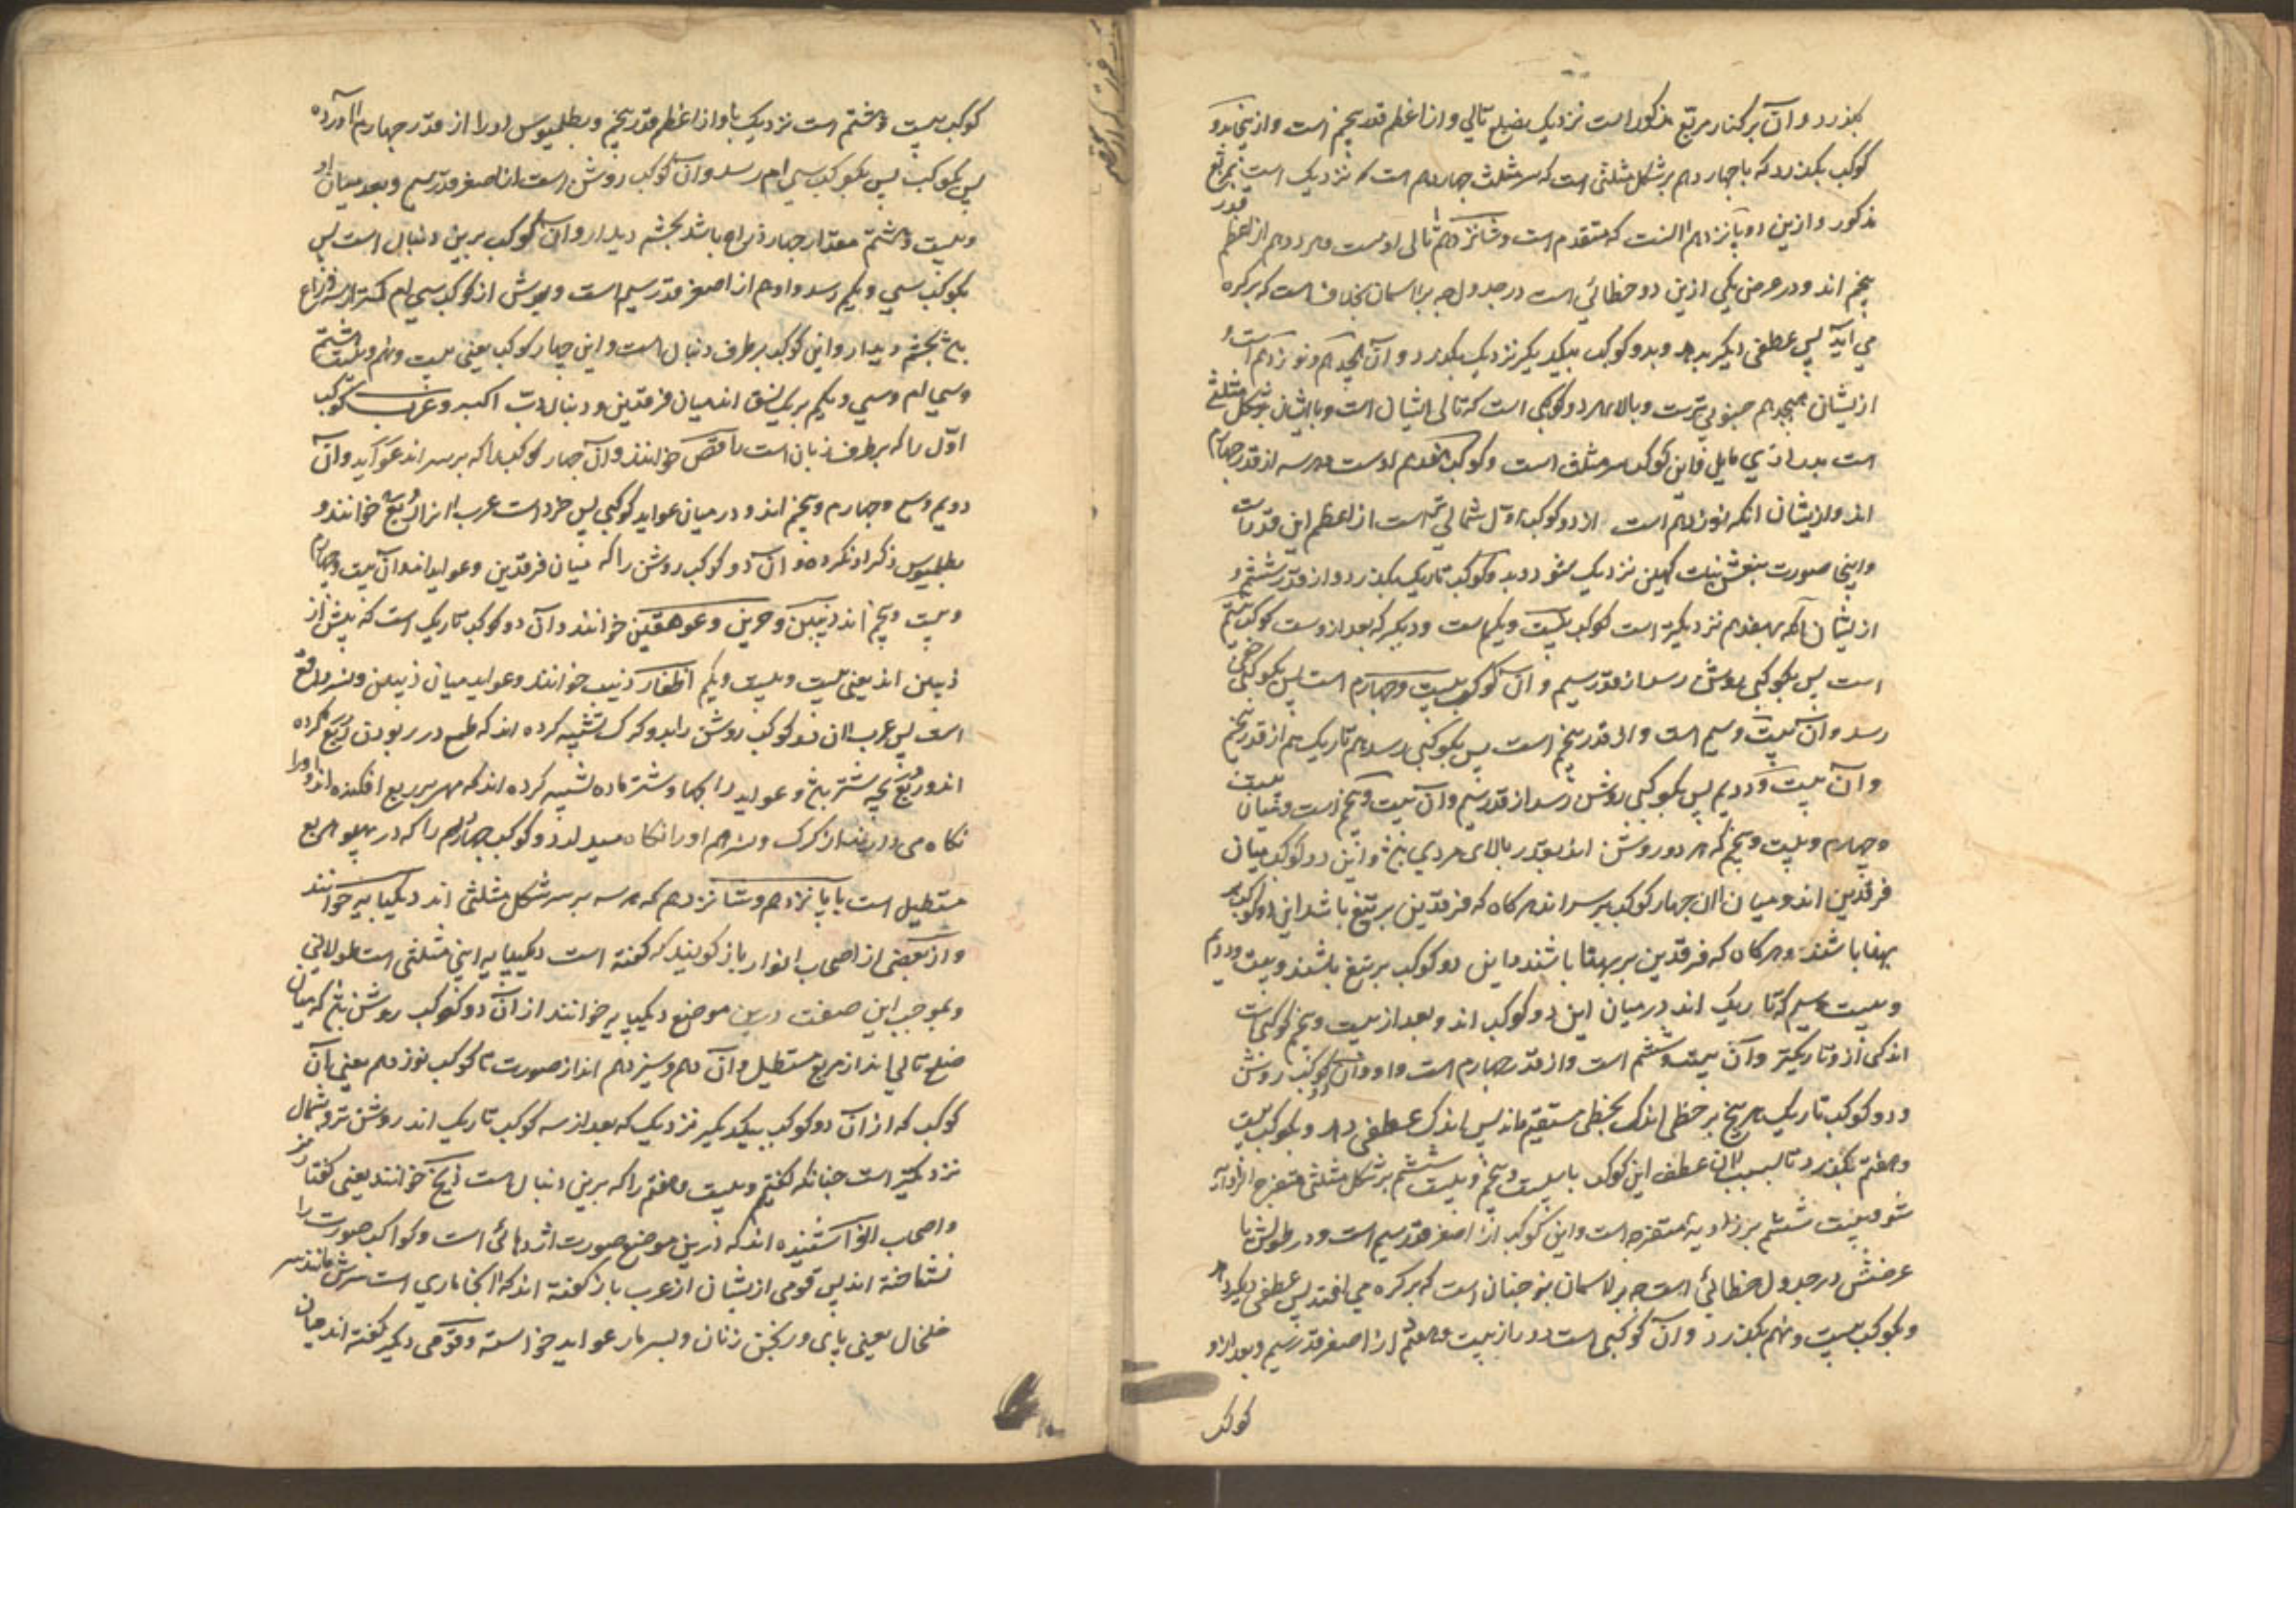 بگذرد و آن بر کنار مربع مذکور است نزدیک بضلع تالی و از اعظم قدر پنجم است و از پنجا بدو
کوکب بگذرد که با چهاردهم بر شکل مثلثی است که سر مثلث چهاردهم است که نزدیک است بمربع
مذکور و ازین دو پانزدهم آنست که متقدم است و شانزدهم تالی اوست و هر دو هم از اعظم قدر
پنجم اند و در عرض یکی ازین دو خطائی است در جدول چه بر آسمان بخلاف است که بر کره
می آید پس عطفی دیگر بدهد و بدو کوکب بیکدیگر نزدیک بگذرد و آن هجدهم و نوزدهم است و
ازیشان هجدهم جنوبی ترست و بالای هر دو کوکبی است که تالی ایشان است و با ایشان بر شکل مثلثی
است مایل فاین کوکب سر مثلث است و کوکب هفدهم اوست هر سه از قدر چهارم
اند و ازیشان آنکه نوزدهم است از دو کوکب اول شمالی تر است از اعظم این قدرات
و اینجا صورت ببنعش بنات کهین نزدیک شود و بدو کوکب تاریک بگذرد و از قدر ششم و
ازیشان آنکه بهفدهم نزدیکتر است کوکب بیست و یکم است و دیگر که بعد ازوست کوکب بیستم
است پس بکوکبی روشن رسد از قدر سیم و آن کوکب بیست و چهارم است پس بکوکبی خفی
رسد و آن بیست و سیم است و از قدر پنجم است پس بکوکبی رسد هم تاریک هم از قدر پنجم
و آن بیست و دویم پس بکوکبی روشن رسد از قدر سیم و آن بیست و پنجم است و میان بیست
و چهارم و بیست و پنجم که هر دو روشن اند بقدر بالای مردی بنج و این دو کوکب میان
فرقدین اند و میان آن چهار کوکب بر سر اند هر گاه که فرقدین بر تیغ باشد این دو کوکب بر
پهنا باشند و هر گاه که فرقدین بر پهنا باشند این دو کوکب بر تیغ باشند و بیست و دویم
و بیست و سیم که تاریک اند در میان این دو کوکب اند و بعد از بیست و پنجم کوکبی است
اندکی ازو تاریکتر و آن بیست و ششم است و از قدر چهارم است و او و آن دو کوکب روشن
و دو کوکب تاریک هر پنج بر خطی اند بخطی مستقیم ماند پس اندک عطفی دهد و بکوکب بیست
و هفتم بگذرد تا بسبب آن عطف این کوکب با بیست و پنجم و بیست و ششم بر شکل مثلثی منفرج الزاویه
شود بیست و ششم بر زاویه منفرجه است و این کوکب از اصغر قدر سیم است و در طولش با
عرضش در جدول خطائی است چه بر آسمان نه چنان است که بر کره می افتد پس عطفی دیگر دهد
و بکوکب بیست و نهم بگذرد و آن کوکبی است دور از بیست و هفتم از اصغر قدر سیم و بعد از او
کوکب
کوکب بیست و هشتم است نزدیک باو از اعظم قدر پنجم و بطلمیوس او را از قدر چهارم آورده
پس بکوکب سی ام رسد و آن کوکب روشن است از اصغر قدر سیم و بعد میان او
و بیست و هشتم مقدار چهار ذراع باشد بچشم دیدار و آن کوکب برین دنبال است پس
بکوکب سی و یکم رسد و او هم از اصغر قدر سیم است و بعدش از کوکب سی ام کمتر از سه ذراع
بنج بچشم دیدار و این کوکب بر طرف دنبال است و این چهار کوکب یعنی بیست و نهم و بیست و هشتم
و سی ام و سی و یکم بر یک نسق اند میان فرقدین و دنبال دب اکبر و عرب کوکب
اول را که بر طرف زبان است راقص خوانند و آن چهار کوکب را که بر سر اند عواید و آن
دویم و سیم و چهارم و پنجم اند و در میان عواید کوکبی بس خرد است عرب آنرا رُبَع خوانند و
بطلمیوس ذکر او نکرده و آن دو کوکب روشن را که میان فرقدین و عواید اند و آن بیست و چهارم
و بیست و پنجم اند ذئبین و حرین و عوهقین خوانند و آن دو کوکب تاریک است که پیش از
ذئبین اند یعنی بیست و بیست و یکم اظفار ذئب خوانند و عواید میان ذئبین و نسر واقع
است پس عرب آن دو کوکب روشن را بدو گرگ تشبیه کرده اند که طمع در ربودن رُبَع کرده
اند و ربع بچه شتر بنج و عواید را بچهار شتر ماده تشبیه کرده اند که مهر بر ربع افکنده اند و او را
نگاه می دارند از گرگ و نسر هم او را نگاه میدارد و کوکب چهاردهم را که در پهلو مربع
مستطیل است با پانزدهم و شانزدهم که هر سه بر سر شکل مثلثی اند دیکپایه خوانند
و از بعضی از اصحاب انوار باز گویند که گفته است دیکپایه اینی مثلثی است طولانی
و بموجب این صفت درین موضع دیکپایه خوانند از آن دو کوکب روشن بنج که میان
ضلع تالی اند از مربع مستطیل و آن دهم و سیزدهم اند از صورت تا کوکب نوزدهم یعنی بآن
کوکب که از آن دو کوکب بیکدیگر نزدیک که بعد از سه کوکب تاریک اند روشن تر و شمال
نزدیکتر است چنانکه گفتیم و بیست و هفتم را که برین دنبال است ذیخ خوانند یعنی کفتار نر
و اصحاب انوا شنیده اند که درین موضع صورت اژدهائی است و کواکب صورت را
نشناخته اند پس قومی ازیشان از عرب باز گفته اند که اینجا ماری است سرش مانند سر
خلخال یعنی پای ورنجن زنان و بسر مار عواید خواسته و قومی دیگر گفته اند میان